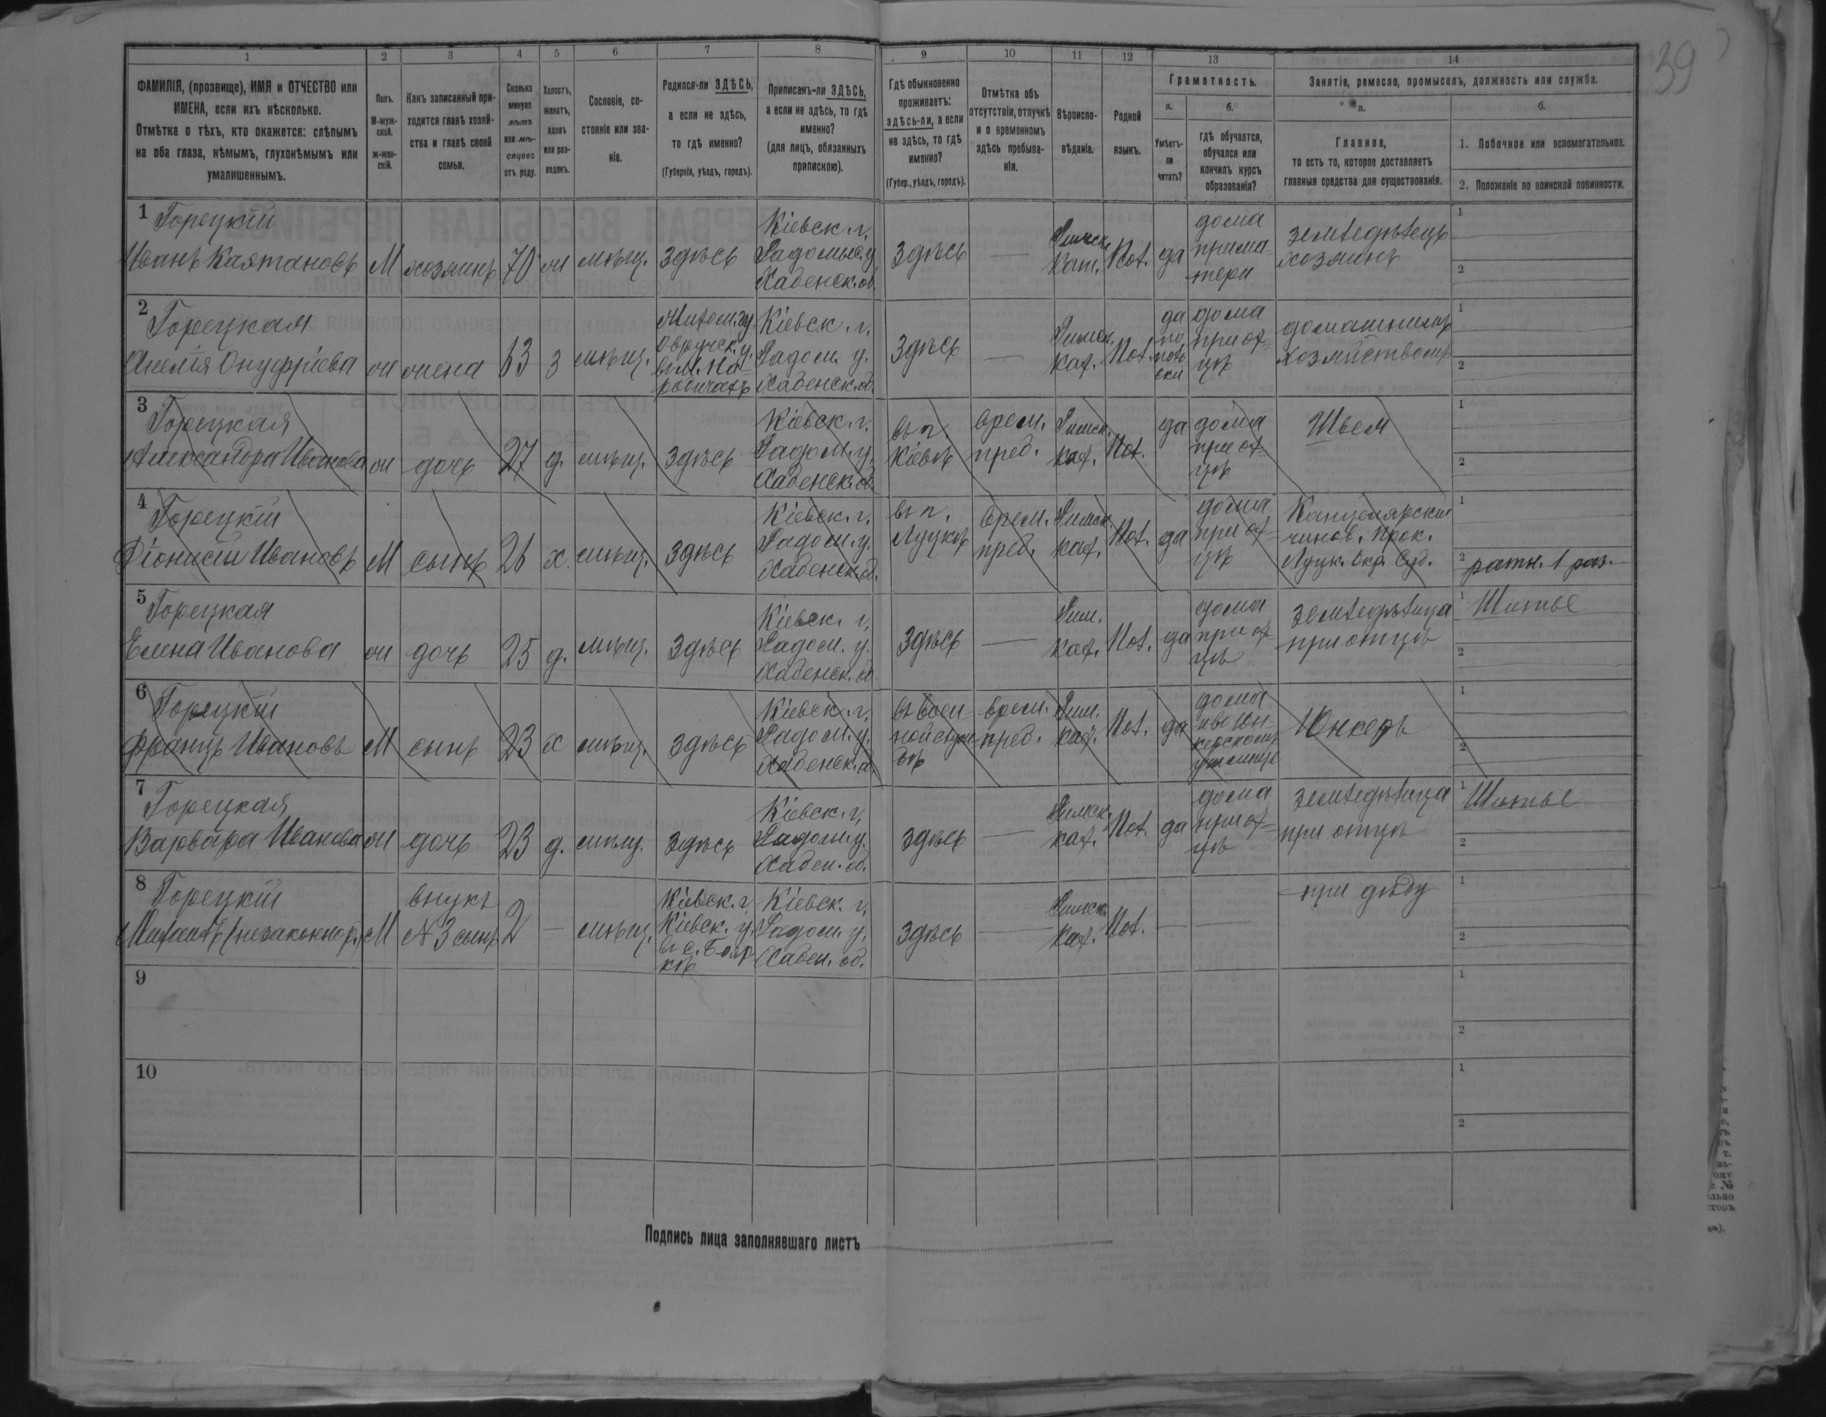 39
1 2 3 4 5 6 7 8 9 10 11 12 13 14
ФАМИЛІЯ, (прозвище), ИМЯ и ОТЧЕСТВО или
ИМЕНА, если ихъ нѣсколько.
Отмѣтка о тѣхъ, кто окажется: слѣпымъ
на оба глаза, нѣмымъ, глухонѣмымъ или
умалишеннымъ.
Полъ.
М-муж-
ской.
ж-жен-
скій.
Какъ записанный при-
ходится главѣ хозяй-
ства и главѣ своей
семьи.
Сколько
минуло
лѣтъ
или мѣ-
сяцевъ
отъ роду.
Холостъ,
женатъ,
вдовъ
или раз-
веденъ.
Сословіе, со-
стояніе или зва-
ніе.
Родился-ли ЗДѢСЬ,
а если не здѣсь,
то гдѣ именно?
(Губернія, уѣздъ, городъ).
Приписанъ-ли ЗДѢСЬ,
а если не здѣсь, то гдѣ
именно?
(для лицъ, обязанныхъ
припискою).
Гдѣ обыкновенно
проживаетъ:
здѣсь-ли, а если
не здѣсь, то гдѣ
именно?
(Губер., уѣздъ, городъ).
Отмѣтка объ
отсутствіи, отлучкѣ
и о временномъ
здѣсь пребыва-
ніи.
Вѣроиспо-
вѣданіе.
Родной
языкъ.
Грамотность.
а.
Умѣетъ-
ли
читать?
б.
гдѣ обучается,
обучался или
кончилъ курсъ
образованія?
Занятіе, ремесло, промыселъ, должность или служба.
а.
Главное,
то есть то, которое доставляетъ
главныя средства для существованія.
б.
1. Побочное или вспомогательное.
2. Положеніе по воинской повинности.
1 Горецкій
Иванъ Каятановъ
М
хозяинъ
70
ж
мѣщ.
здѣсь
Кіевск. г.
Радомыс. у.
Хабенск. об.
здѣсь
—
Римск.
Кат.
Пол.
да
дома
при ма-
тери
земледѣлецъ
хозяинъ
1
2
2 Горецкая
Анелія Онуфріева
ж
жена
63
з
мѣщ.
Овручск. у.
Кіевск. г.
Радом. у.
Хабенск. об.
здѣсь
—
Римск.
кат.
Пол.
да
по
поль
ски
дома
при от-
цѣ
домашнимъ
хозяйствомъ
1
2
3 Горецкая
Александра Иванова
ж
дочь
27
д.
мѣщ.
здѣсь
Кіевск. г.
Радом. у.
Хабенск. об.
въ г.
Кіевѣ
врем.
преб.
Римск.
кат.
Пол.
да
дома
при от-
цѣ
Швея
1
2
4 Горецкій
Діонисій Ивановъ
М
сынъ
26
х.
мѣщ.
здѣсь
Кіевск. г.
Радом. у.
Хабенск. об.
въ г.
Луцкѣ
врем.
преб.
Римск.
кат.
Пол.
да
дома
при от-
цѣ
Канцелярскій
чинов. Прок.
Луцк. Окр. Суд.
1
2 ратн. 1 раз.
5 Горецкая
Елена Иванова
ж
дочь
25
д.
мѣщ.
здѣсь
Кіевск. г.
Радом. у.
Хабенск. об.
здѣсь
—
Рим.
кат.
Пол.
да
дома
при от
цѣ
земледѣлица
при отцѣ
1 Шитье
2
6 Горецкій
Францъ Ивановъ
М
сынъ
23
х
мѣщ.
здѣсь
Кіевск. г.
Радом. у.
Хабенск. об.
въ воен
ной служ
бѣ
врем.
преб.
Рим.
кат.
Пол.
да
дома
и въ юн
керскомъ
училищѣ
Юнкеръ
1
2
7 Горецкая
Варвара Иванова
ж
дочь
23
д.
мѣщ.
здѣсь
Кіевск. г.
Радом. у.
Хабен. об.
здѣсь
—
Римск.
кат.
Пол.
да
дома
при от-
цѣ
земледѣлица
при отцѣ
1 Шитье
2
8 Горецкій
Михаилъ (незаконнор.)
М
внукъ
№ 3 сынъ
2
—
мѣщ.
Кіевск. г.
Кіевск. у.
въ с. Бояр
кѣ
Кіевск. г.
Радом. у.
Хабен. об.
здѣсь
—
Римск.
Кат.
Пол.
—
—
при дѣду
1
2
9
1
2
10
1
2
Подпись лица заполнявшаго листъ